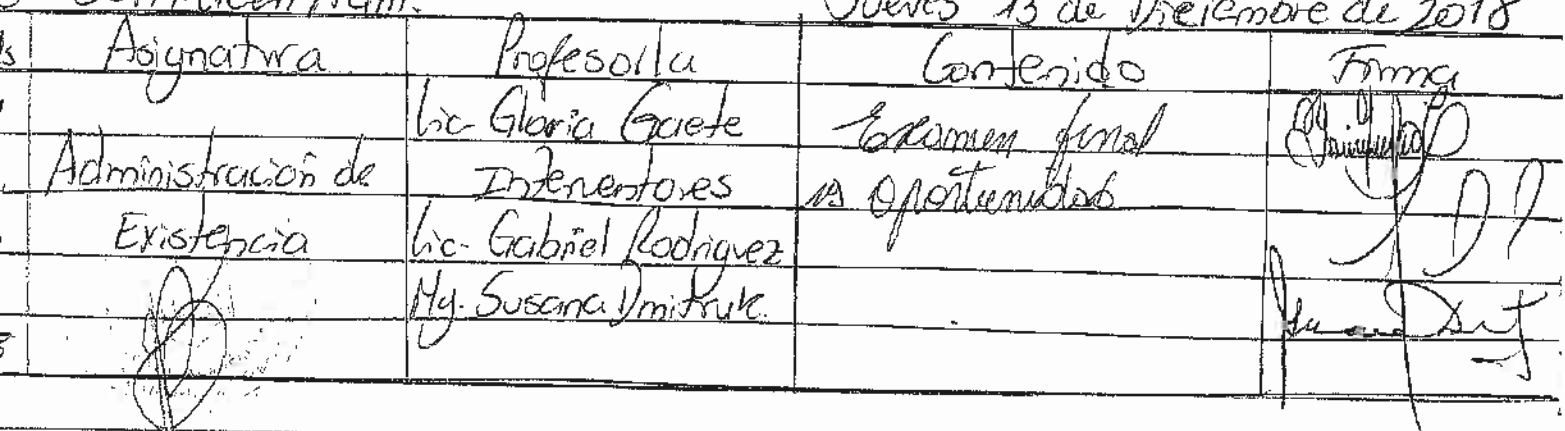 Jueves 13 de Diciembre de 2018
Asignatura Profesor/a Contenido Firma
Lic Gloria Gaete Examen final
Administración de Interventores 1a oportunidad
Existencia Lic. Gabriel Rodriguez
Mg. Susana Dmitruk.